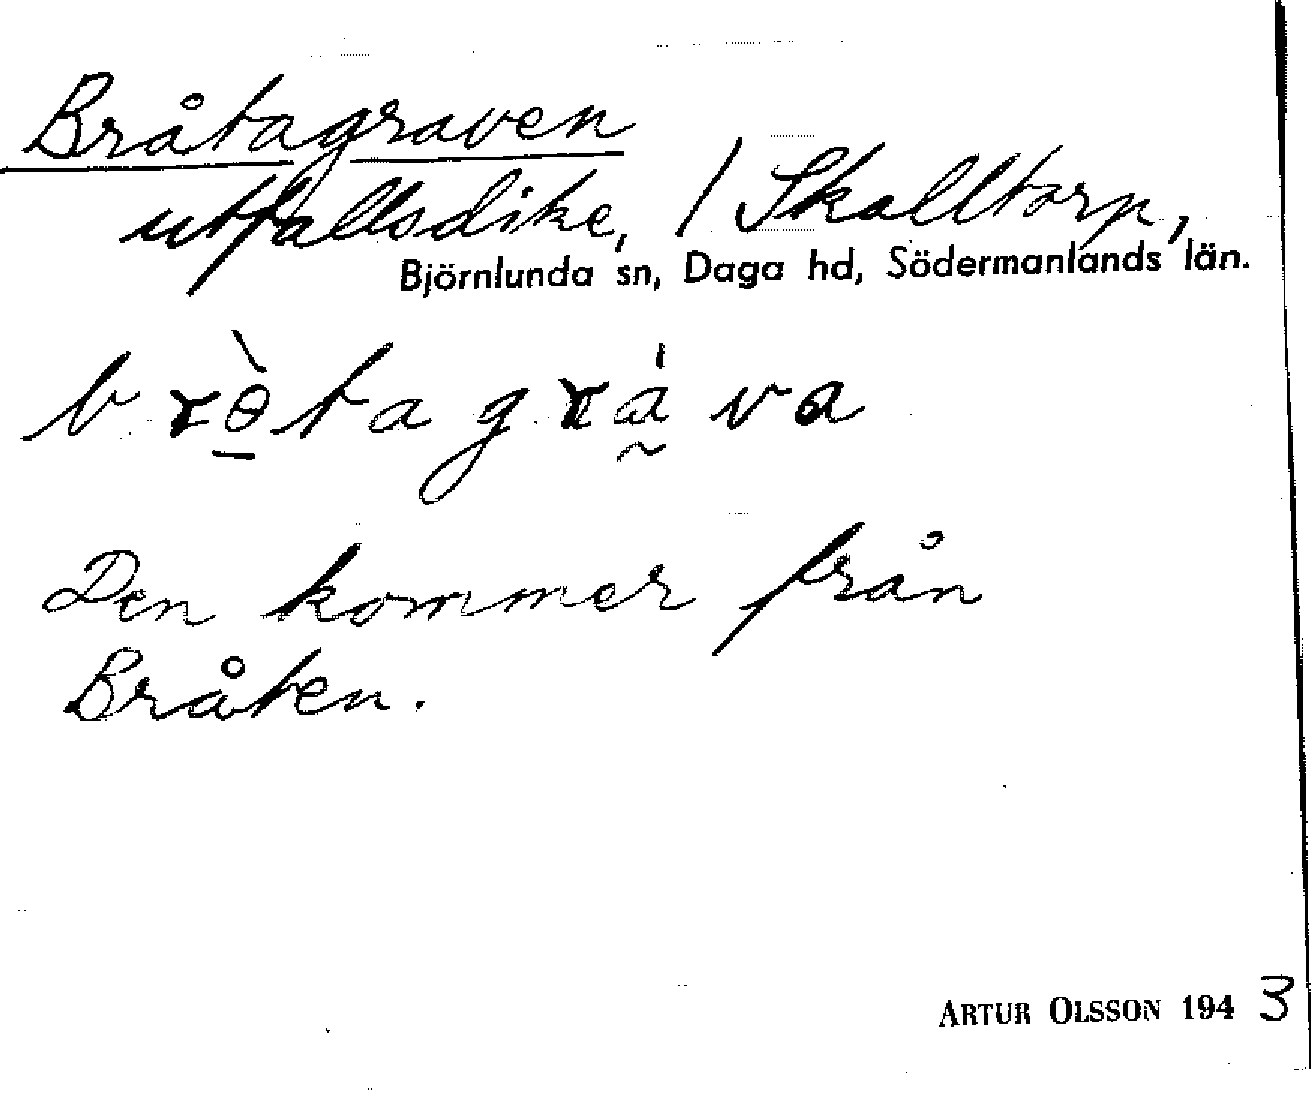 Bråtagraven
utfallsdike, / Skalltorp,
Björnlunda sn, Daga hd, Södermanlands län.
brɵ̠̀tagrá̰va
Den kommer från
Bråten.
ARTUR OLSSON 1943